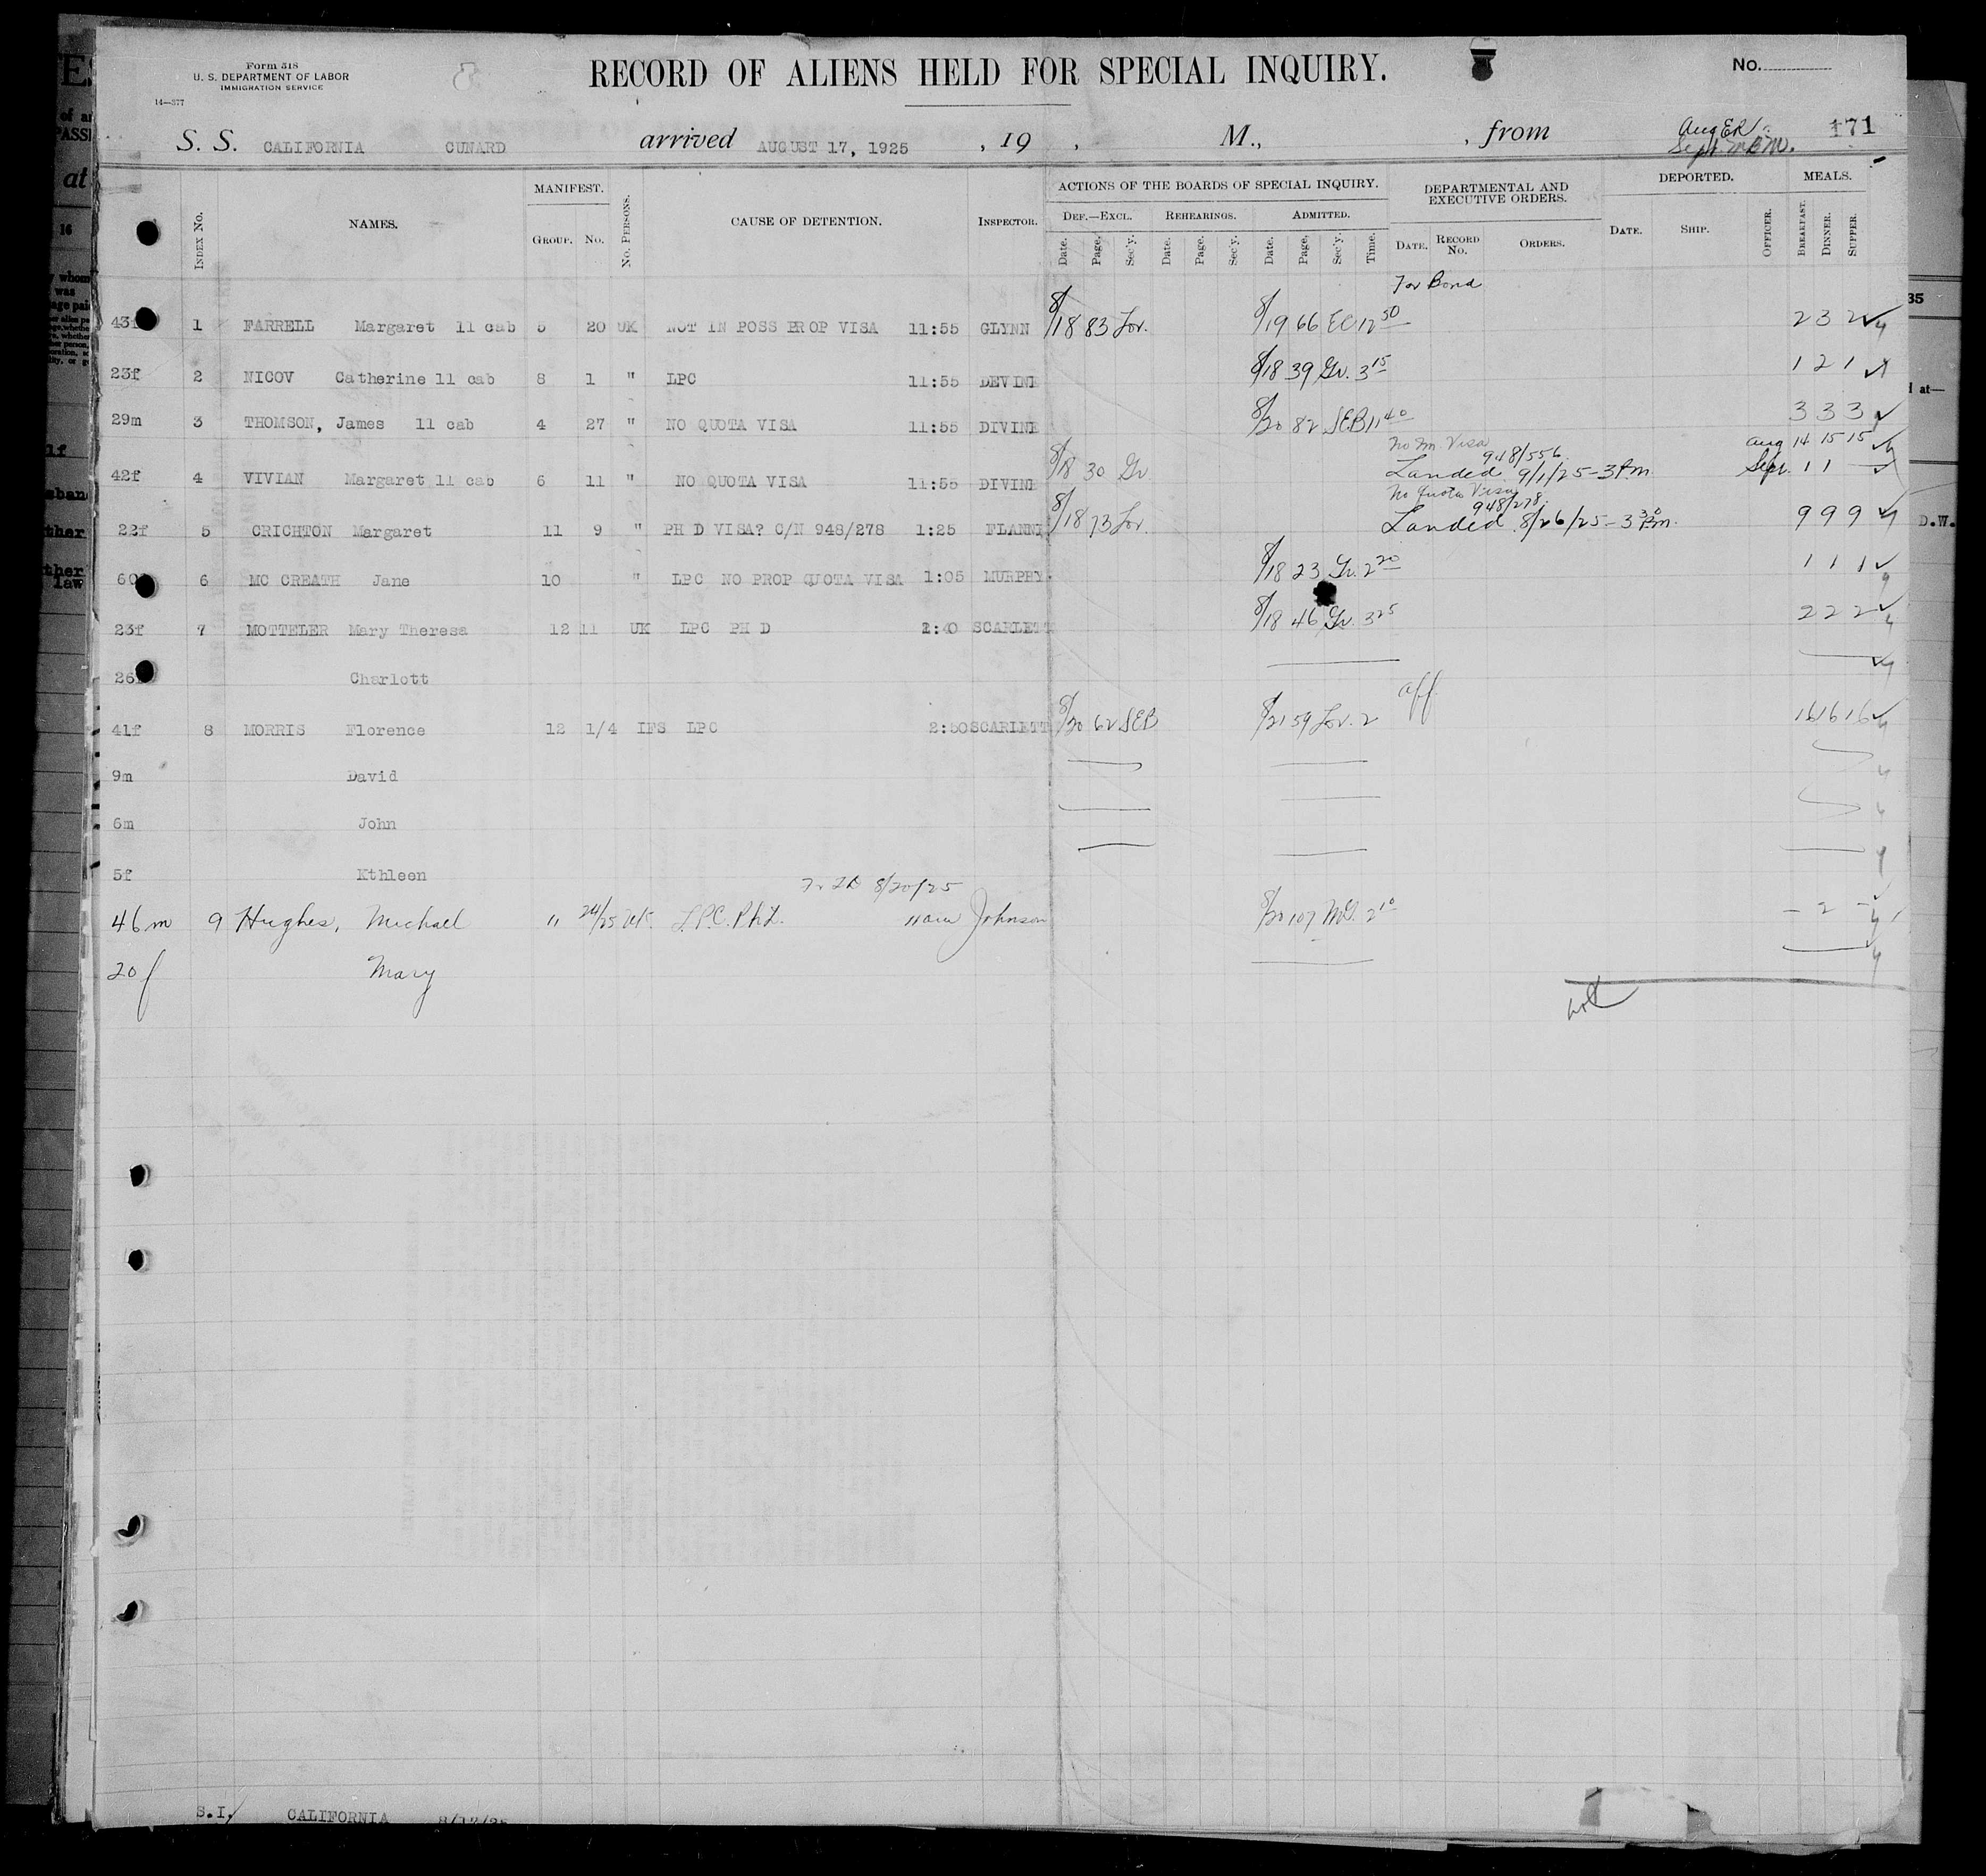 Form 518
U. S. DEPARTMENT OF LABOR
IMMIGRATION SERVICE
14—377
RECORD OF ALIENS HELD FOR SPECIAL INQUIRY.
No.
S. S. CALIFORNIA CUNARD arrived AUGUST 17, 1925 , 19 , M., , from
Aug ER
Sept. M.B.M.
171
INDEX No. NAMES. MANIFEST. GROUP. No. No. PERSONS. CAUSE OF DETENTION. INSPECTOR. ACTIONS OF THE BOARDS OF SPECIAL INQUIRY. DEPARTMENTAL AND EXECUTIVE ORDERS. DEPORTED. MEALS.
DEF.—EXCL. REHEARINGS. ADMITTED.
Date. Page. Sec'y. Date. Page. Sec'y. Date. Page. Sec'y. Time. DATE. RECORD No. ORDERS. DATE. SHIP. OFFICER. BREAKFAST. DINNER. SUPPER.
For Bond
43f 1 FARRELL Margaret 11 cab 5 20 UK NOT IN POSS PROP VISA 11:55 GLYNN 8/18 83 Lov. 8/19 66 EC 12 50 2 3 2
23f 2 NICOV Catherine 11 cab 8 1 " LPC 11:55 DEVINE 8/18 39 Gr. 3 15 1 2 1
29m 3 THOMSON, James 11 cab 4 27 " NO QUOTA VISA 11:55 DIVINE 8/20 82 SEB 11 40 3 3 3
No Im. Visa 948/556 Aug 14 15 15
42f 4 VIVIAN Margaret 11 cab 6 11 " NO QUOTA VISA 11:55 DIVINE 8/18 30 Gr. Landed 9/1/25 - 3 P.m. Sept. 1 1 —
No Quota Visa 948/278
22f 5 CRICHTON Margaret 11 9 " PH D VISA? C/N 948/278 1:25 FLANN 8/18 73 Lov. Landed 8/26/25 - 3 30 P.m. 9 9 9
60 6 MC CREATH Jane 10 " LPC NO PROP QUOTA VISA 1:05 MURPHY. 8/18 23 Gr. 2 20 1 1 1
23f 7 MOTTELER Mary Theresa 12 11 UK LPC PH D :40 SCARLETT 8/18 46 Gr. 3 25 2 2 2
26 Charlott
41f 8 MORRIS Florence 12 1/4 IFS LPC 2:50 SCARLETT 8/20 62 SEB 8/21 59 Lov. 2 aff. 16 16 16
9m David
6m John
5f Kthleen
8/20/25
46m 9 Hughes, Michael 11 24/25 UK. L.P.C. Ph.D. 11am Johnson 8/20 107 2 10 — 2 —
20f Mary
S.I. CALIFORNIA 8/17/25